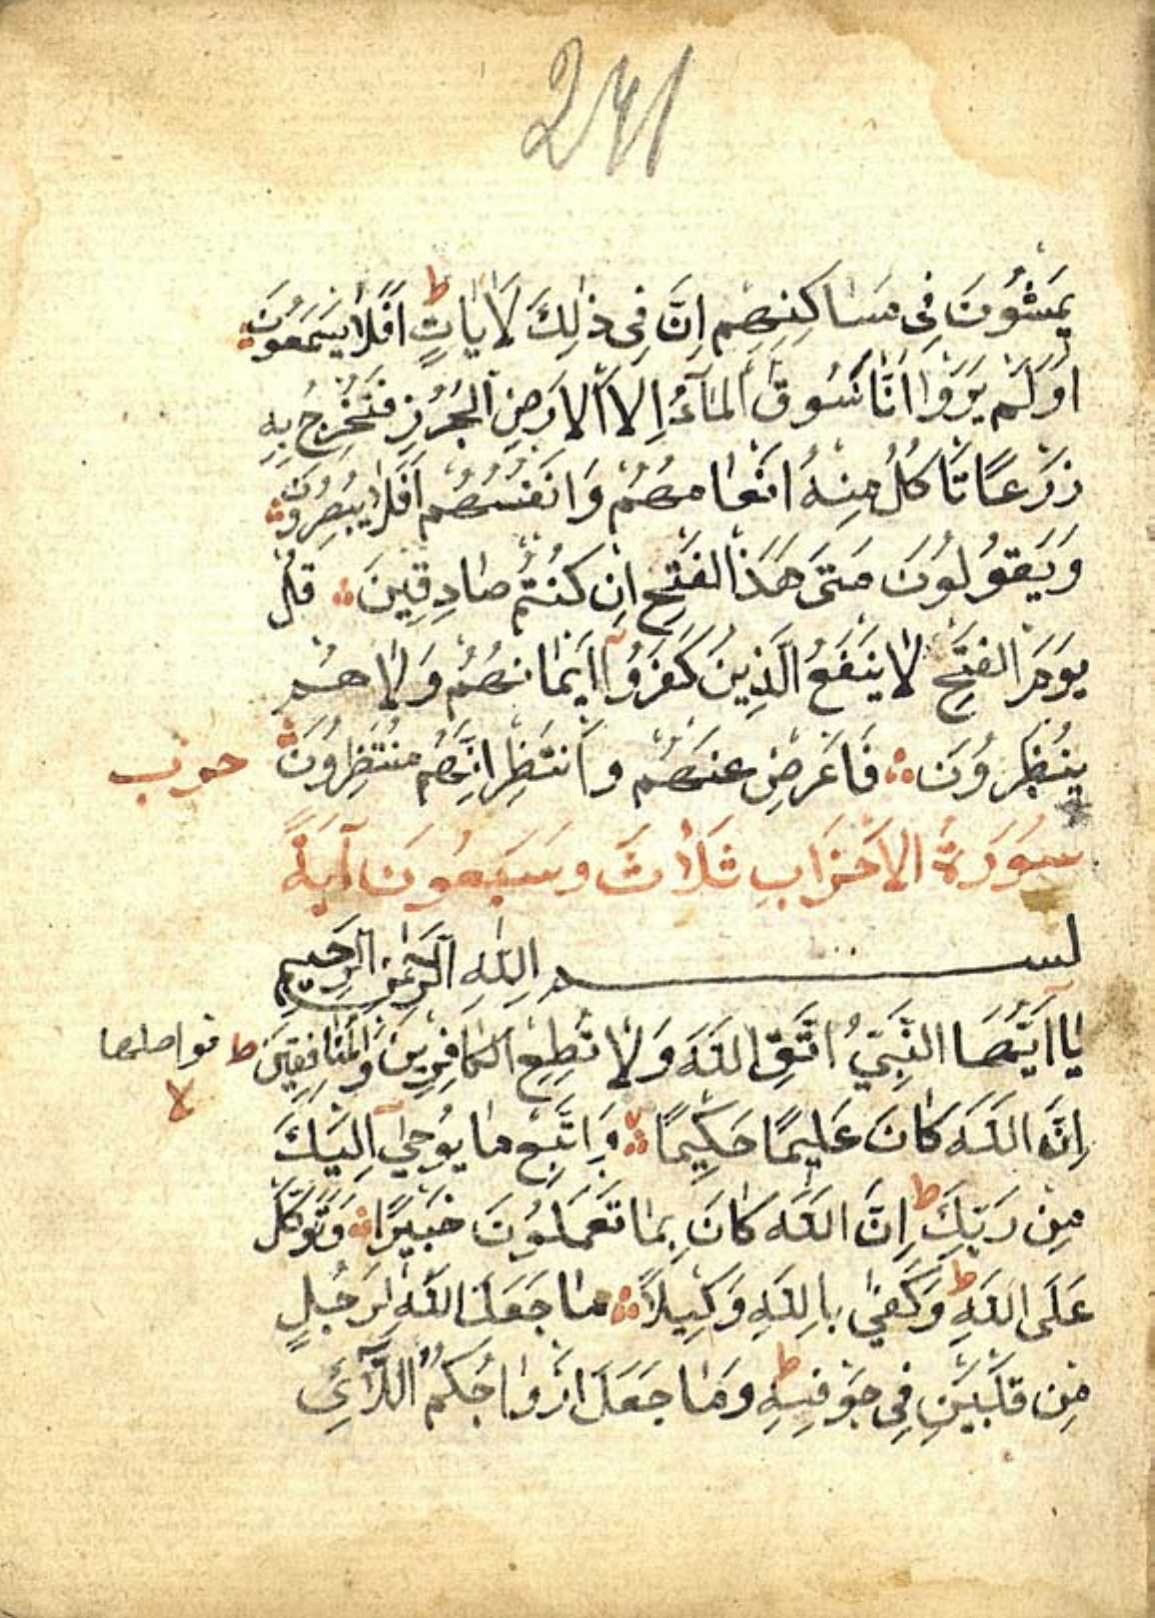 241
يَمْشُونَ فِى مَسَاكِنِهِم اِنَّ فِى ذٰلِكَ لَاٰيَاتٍ ط اَفَلَا يَسْمَعُونَ
اَوَلَمْ يَرَوْا اَنَّا نَسُوقُ الْمَآءَ اِلَا اْلاَرْضِ الْجُرُزِ فَنُخْرِجُ بِهِ
زَرْعًا تَأكُلُ مِنْهُ اَنْعَامُهُمْ وَاَنْفُسُهُمْ اَفَلَا يُبْصِرُونَ
وَيَقُولُونَ مَتَىٰ هَذَا الفَتْحُ اِن كُنْتُمْ صَادِقِينَ قُلْ
يَوْمَ الفَتْحِ لَا يَنْفَعُ الَّذِينَ كَفَرُوآ اِيمَانُهُمْ وَلَا هُمْ
يُنْظَرُونَ فَاَعْرِضْ عَنْهُمْ وَاَنتَظِرْ اِنَّهُمْ مُنْتَظِرُونَ
حزب
سُورَةُ الاَحْزَابِ ثَلَاثَ وسَبَعُونَ آيَةً
بسم اللهِ الرَّحْمٰنِ الرَّحِيمِ
يَا اَيُّهَا النَّبِيُّ اتَّقِ اللَّهَ وَلَا تُطِعِ الكَافِرِينَ وَالْمُنَافِقِينَ ط
فواصلها
لا
اِنَّ اللَّهَ كَانَ عَلِيمًا حَكِيمًا وَاتَّبِعْ مَا يُوحَىٰ اِلَيْكَ
مِن رَبِّكَ ط اِنَّ اللَّهَ كَانَ بِمَا تَعْمَلُونَ خَبِيرًا وَتَوَكَّلْ
عَلَى اللَّهِ ط وَكَفَىٰ بِاللَّهِ وَكِيلاً مَا جَعَلَ اللَّهُ لِرَجُلٍ
مِن قَلْبَيْنِ فِى جَوْفِهِ ط وَمَا جَعَلَ اَزْوَاجَكُمُ اللَّآئِى